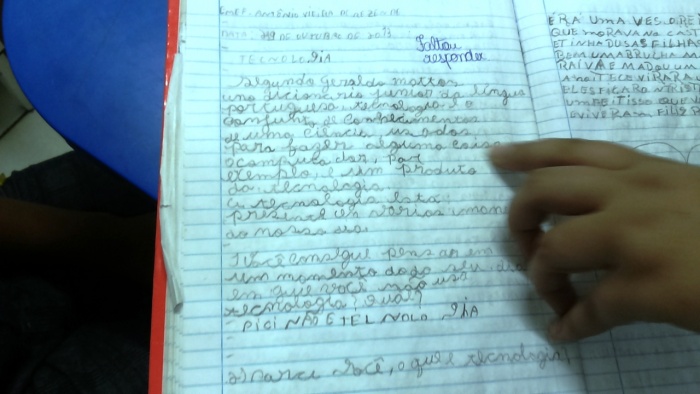 EMEF. ANTÔNIO VIEIRA DE
DATA, 29 DE OUTUBRO DE 2013
Faltou
responder
TECNOLOGIA
Segundo Geraldo mattos
uno dicionario junior da lingua
portuguesa, tecnologia é o
conjunto de conhecimentos
de uma ciencia usados
para fazer alguma coisa
o computador, por
exemplo, é um produto
da tecnologia.
a tecnologia esta
present en varios
do nosso dia.
1 Você consigue pensar em
um momento do do seu dia
em que você não usa
tecnologia? qual?
PICINÃO E TELNOLOGIA
2) Para Você, o que e tecnologia
ÉRA UMA VES. O REI
QUE MORAVA NA CAST
E TINHA DUSAS FILHA
BEM UMA BRUCHA
RAIVA E MADOU UM
ANOITECE VIRARA
ELES FICARO NTRIST
UM FEITISSO QUE
E VIVERAM FILIS P